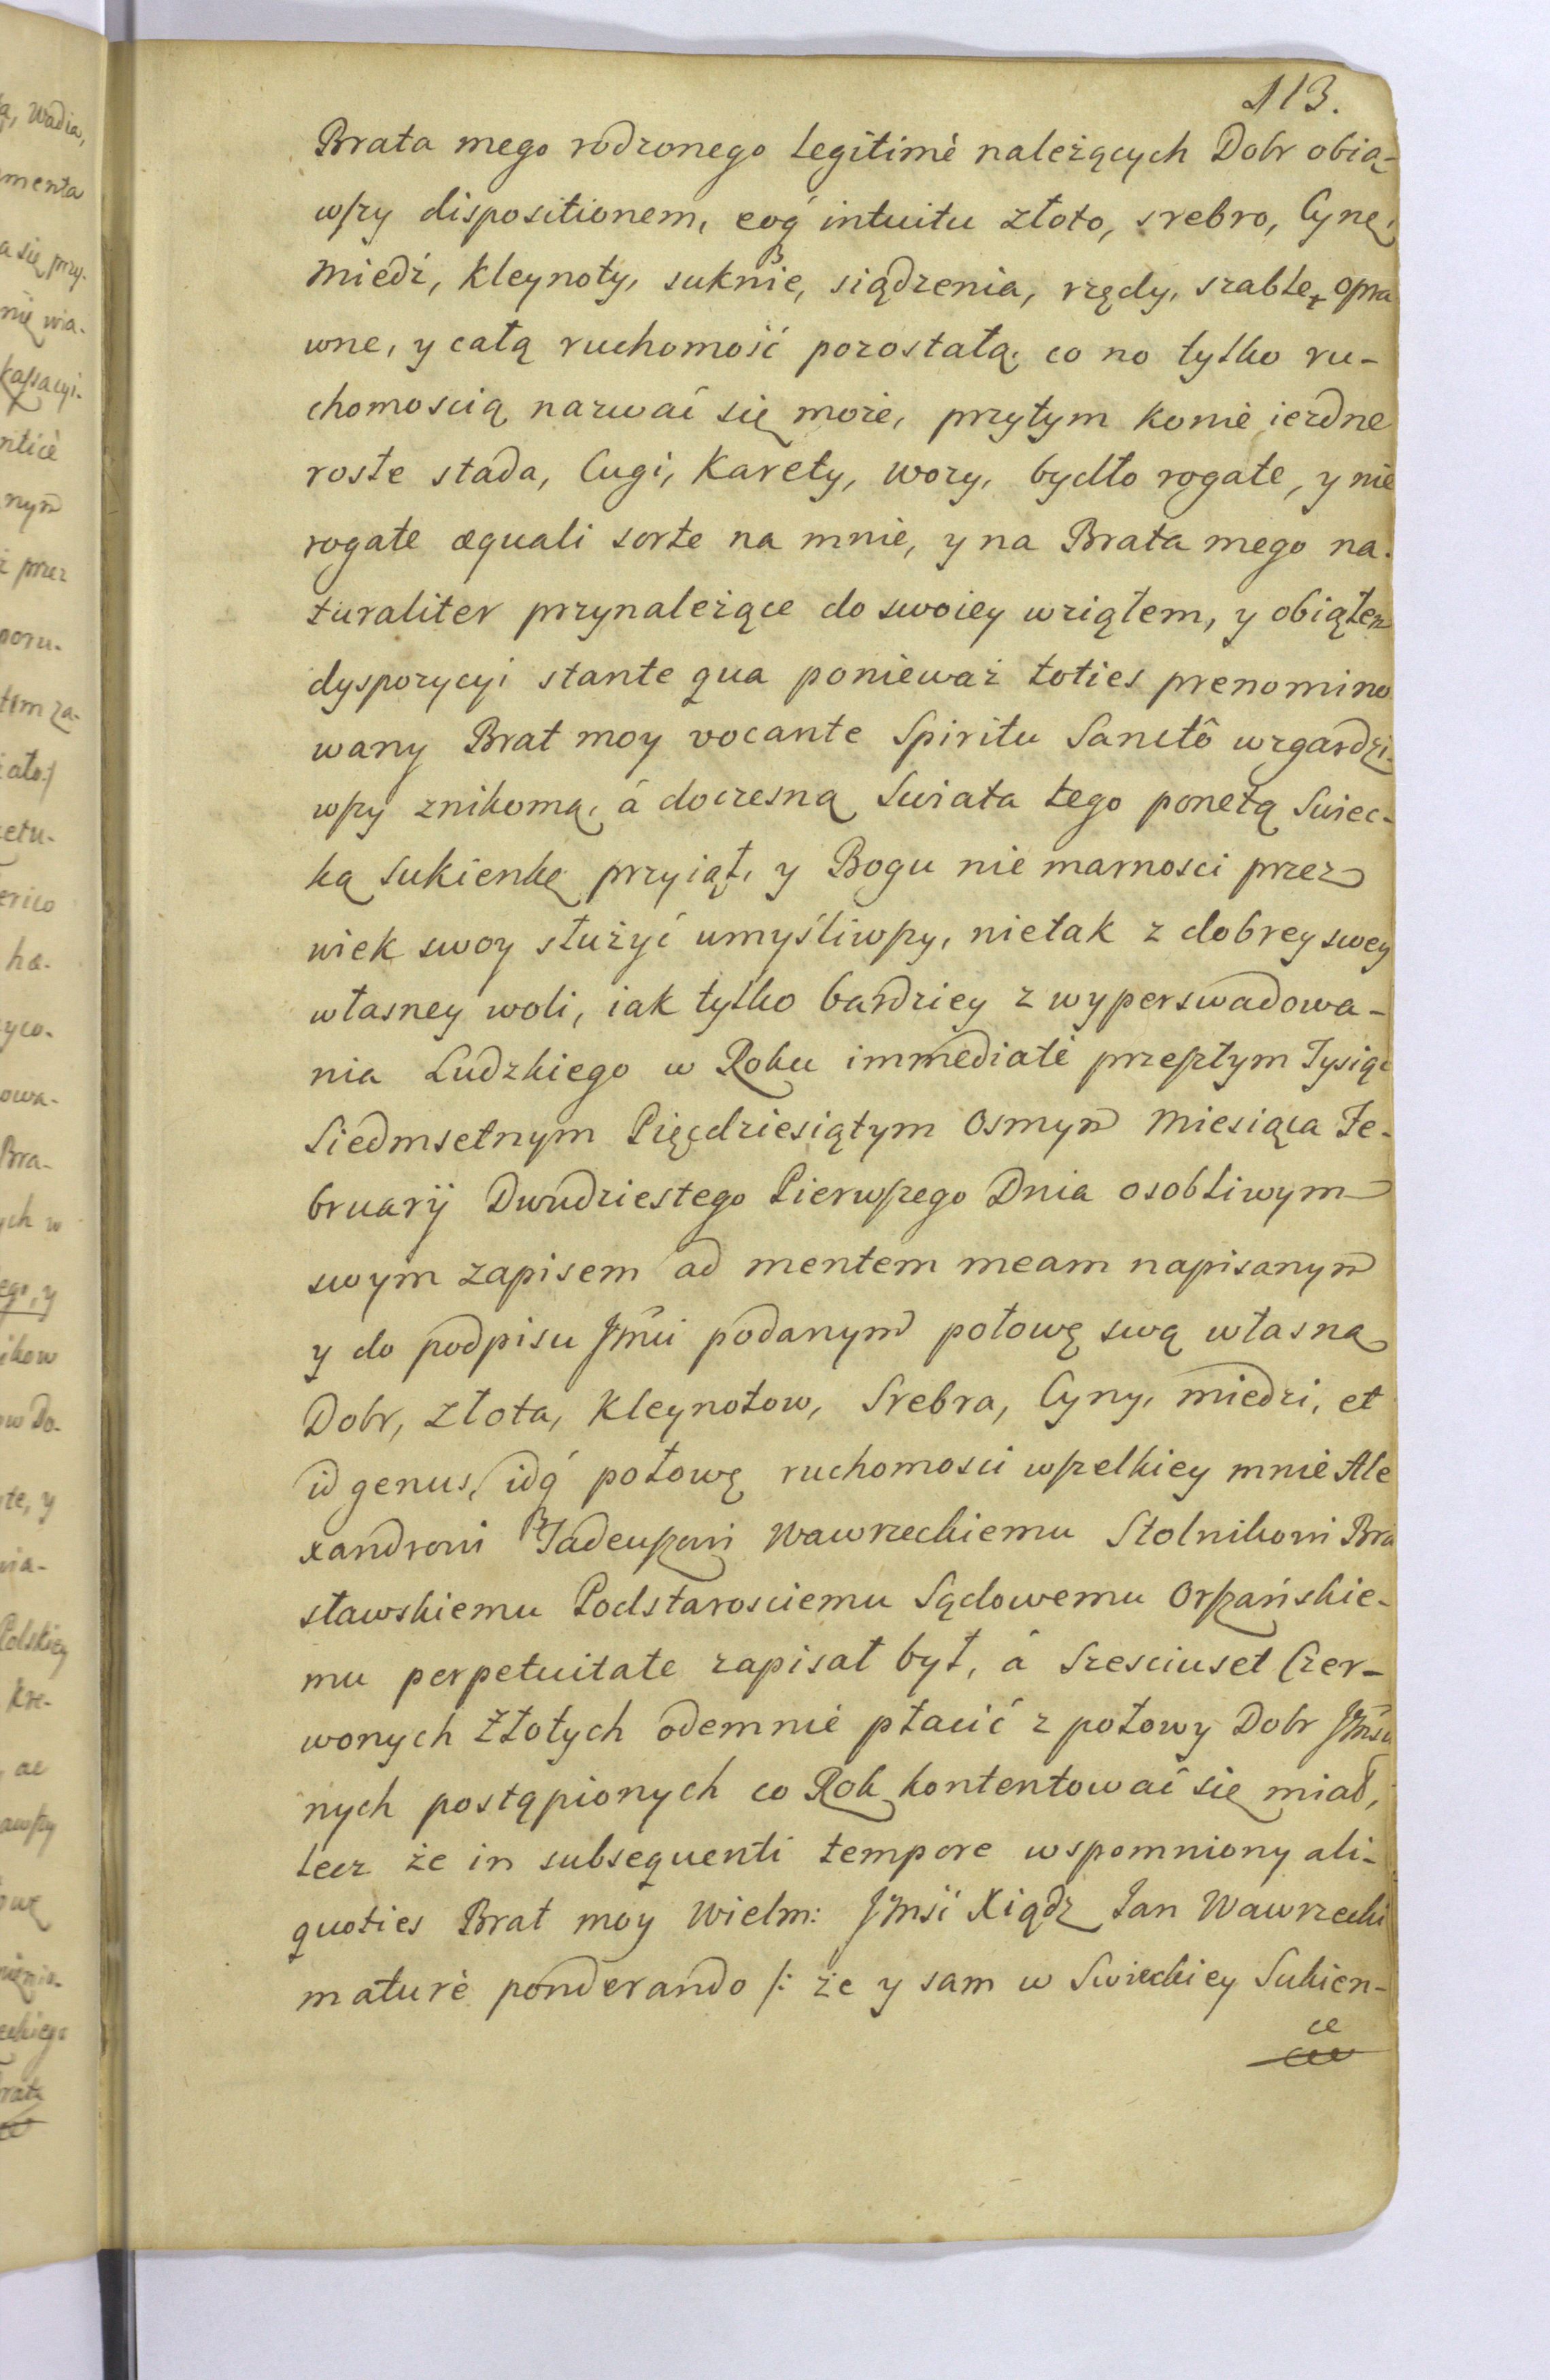 113.
Brata mego rodzonego legitimè należących Dobr obią-
wszy dispositionem, eoq́ intuitu złoto, srebro, Cynę,
Miedź, Kleynoty, suknie, siądzenia, rzędy, szable opra
wne, y całą ruchomość pozostałą, co no tylko ru-
chomoscią nazwać się może, przytym konie iezdne
rosłe stada, Cugi, Karety, wozy, bydło rogate, y nie
rogate æquali sorte na mnie, y na Brata mego na-
turaliter przynależące do swoiey wziąłem, y obiąłem
dyspozycyi stante qua ponieważ toties prenomino
wany Brat moy vocante Spiritu Sanctô wzgardzi-
wszy znikomą, á doczesną Swiata tego ponętą Swiec-
ką Sukienkę przyiął, y Bogu nie marnosci przez
wiek swoy służyć umyśliwszy, nietak z dobrey swey
własney woli, iak tylko bardziey z wyperswadowa-
nia Ludzkiego w Roku immediatè przeszłym Tysiąc
Siedmsetnym Pięcdziesiątym Osmym Miesiąca Fe-
bruarÿ Dwudziestego Pierwszego Dnia osobliwym
swym zapisem ad mentem meam napisanym
y do podpisu Jmũi podanym połowę swą własną
Dobr, złota, Kleynotow, Srebra, Cyny, miedzi, et
id genus, idq́ połowę ruchomosci wszelkiey mnie Ale
xandrowi Tadeuszowi Wawrzeckiemu Stolnikowi Bra
sławskiemu Podstarosciemu Sądowemu Orszańskie-
mu perpetuitate zapisał był, á Szesciuset Czer-
wonych Złotych odemnie płacić z połowy Dobr Jm̃su
nych postąpionych co Rok kontentować się miał,
lecz że in subsequenti tempore wspomniony ali-
quoties Brat moy Wielm: Jm̃sć Xiądz Jan Wawrzecki
maturè ponderando /: że y sam w Swieckiey Sukien-
ce